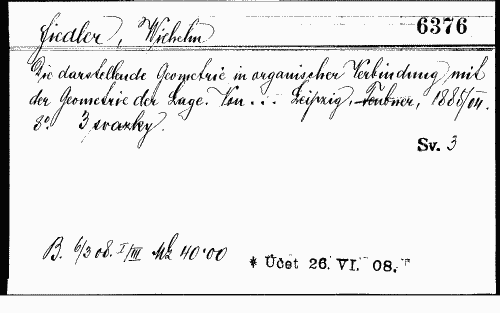 Fiedler, Wichelm 6376
Die darstellende Geometrie in organischer Verbindung mit
der Geometrie der Lage. Von... Leipzig, Teubner, 1885/04.
8°. 3 svazky.
Sv. 3
B. 6/3 08. I/III Mk 40·00
* Účet 26. VI. 08.